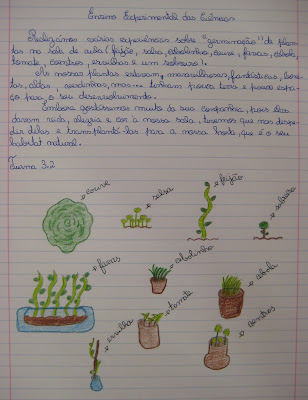 Ensino Experimental das Ciências
Realizámos várias experiências sobre "germinação" de plan-
tas na sala de aula (feijão, salsa, cebolinho, couve, favas, cebola,
tomate, coentros, ervilhas e um sobreiro).
As nossas plantas estavam maravilhosas, fantásticas, boni-
tas, altas, verdinhas, mas... tinham pouca terra e pouco espa-
ço para o seu desenvolvimento.
Embora gostássemos muito da sua companhia, pois elas
davam vida, alegria e cor à nossa sala, tivemos que nos despe-
dir delas e transplantá-las para a nossa horta, que é o seu
habitat natural.
Turma 3.2
couve
salsa
feijão
sobreiro
favas
cebolinho
cebola
ervilha
tomate
coentros